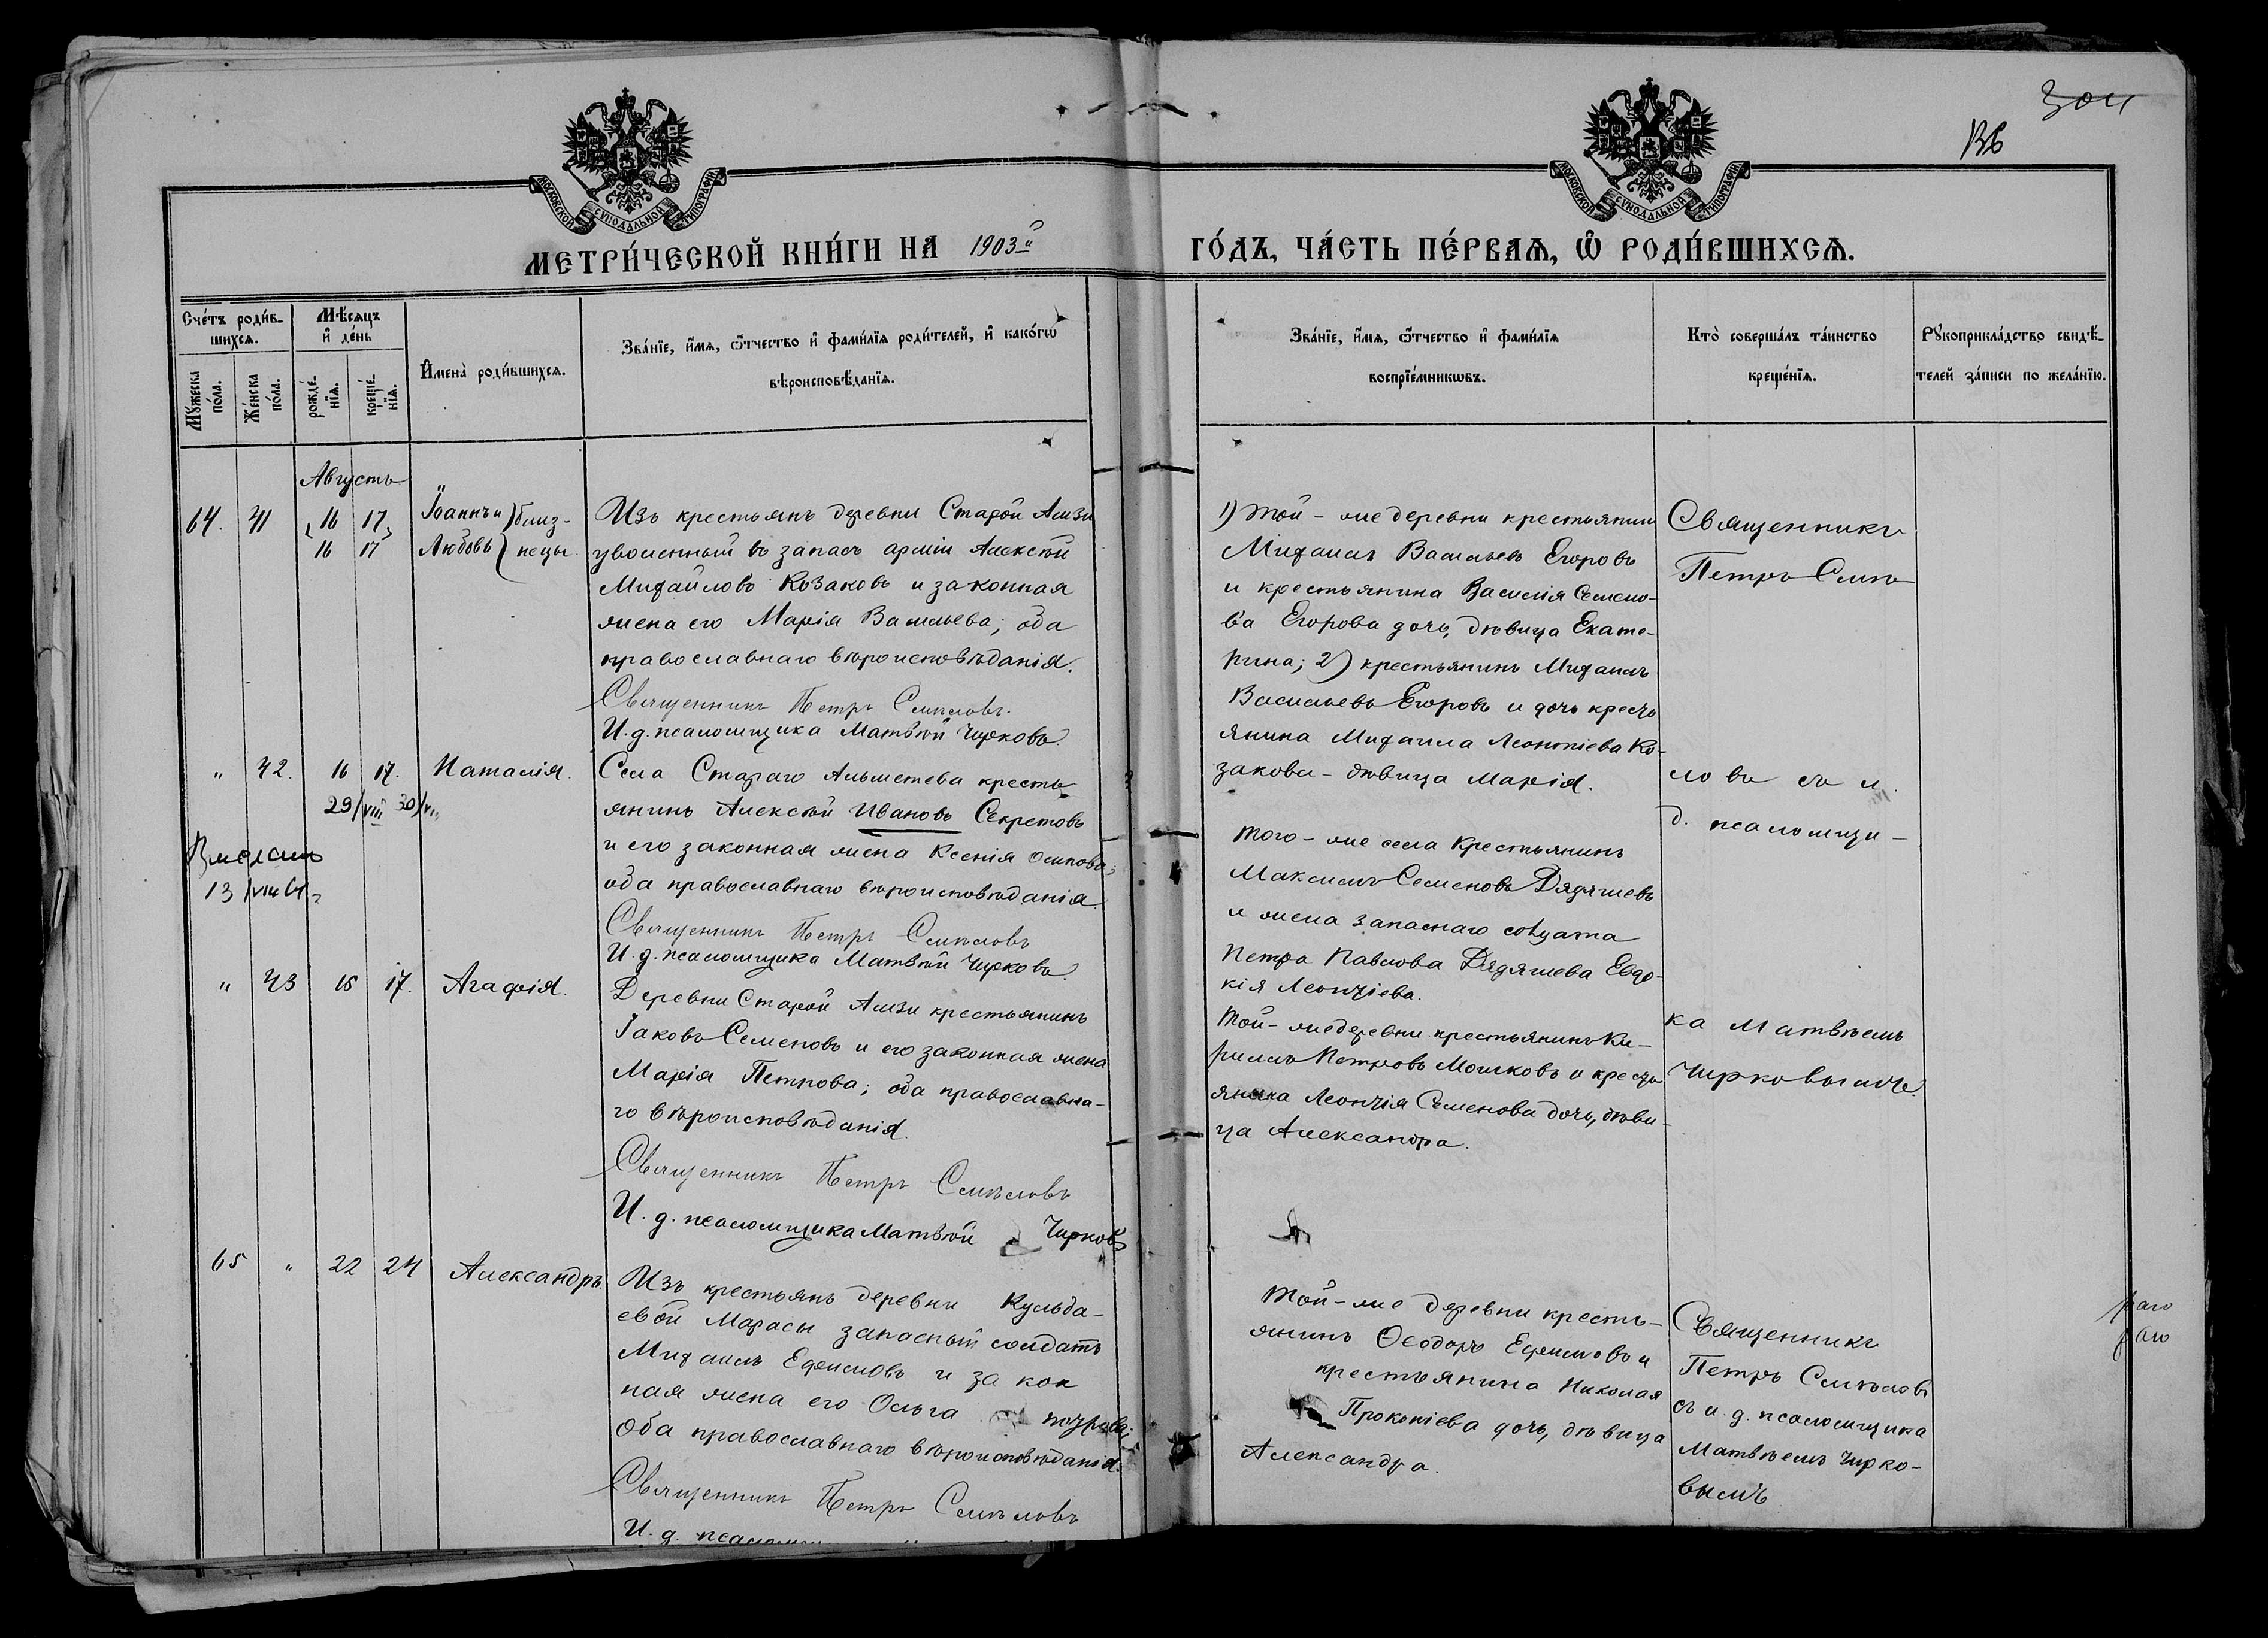 МОСКОВСКОЙ СУНОДАЛЬНОЙ ТИПОГРАФІИ
МОСКОВСКОЙ СУНОДАЛЬНОЙ ТИПОГРАФІИ
МЕТРИ́ЧЕСКОЙ КНИ́ГИ НА 1903й ГО́ДЪ, ЧА́СТЬ ПЕ́РВАѦ, Ѡ РОДИ́ВШИХСѦ.
Сче́тъ роди́в-
шихсѧ.
Мѣ́сѧцъ
и҆ де́нь
Мꙋ́жеска
по́ла.
Же́нска
по́ла.
рожде́-
нїѧ.
креще́-
нїѧ.
И҆мена̀ роди́вшихсѧ.
Зва́нїе, и҆́мѧ, ѻ҆́тчество и҆ фами́лїѧ роди́телей, и҆ како́гѡ
вѣроисповѣ́данїѧ.
Зва́нїе, и҆́мѧ, ѻ҆́тчество и҆ фами́лїѧ
воспрїе́мникѡвъ.
Кто̀ соверша́лъ та́инство
креще́нїѧ.
Рꙋкоприкла́дство свидѣ́-
телей за́писи по жела́нїю.
Августъ
64. 41 16 17
16 17
Іоаннъ и
Любовь
близ-
нецы.
Изъ крестьянъ деревни Старой Амзи
уволенный въ запасъ арміи Алексѣй
Михайловъ Козаковъ и законная
жена его Марія Васильева; оба
православнаго вѣроисповѣданія.
Священникъ Петръ Смѣловъ.
И. д. псаломщика Матвѣй Чирковъ.
1) Той-же деревни крестьянинъ
Михаилъ Васильевъ Егоровъ
и крестьянина Василія Семено-
ва Егорова дочь, дѣвица Екате-
рина; 2) крестьянинъ Михаилъ
Васильевъ Егоровъ и дочь кресть
янина Михаила Леонтіева Ко-
закова - дѣвица Марія.
Священникъ
Петръ Смѣ
" 42. 16 17. Наталія.
29/VIII 30/VIII
13/VIII
Села Стараго Альметева кресть
янинъ Алексѣй Ивановъ Секретовъ
и его законная жена Ксенія Осипова;
оба православнаго вѣроисповѣданія.
Священникъ Петръ Смѣловъ
И. д. псаломщика Матвѣй Чирковъ.
Того-же села крестьянинъ
Максимъ Семеновъ Дядяшевъ
и жена запаснаго солдата
Петра Павлова Дядяшева Евдо-
кія Леонтіева.
ловъ съ и.
д. псаломщи-
" 43 15 17. Агафія.
Деревни Старой Амзи крестьянинъ
Іаковъ Семеновъ и его законная жена
Марія Петрова; оба православна-
го вѣроисповѣданія.
Священникъ Петръ Смѣловъ
И. д. псаломщика Матвѣй Чирковъ
Той-же деревни крестьянинъ Ки-
риллъ Петровъ Мошковъ и кресть
янина Леонтія Семенова дочь, дѣви-
ца Александра.
ка Матвѣемъ
Чирковымъ.
65 " 22 24 Александръ
Изъ крестьянъ деревни Кульба-
евой Марасы запасный солдатъ
Михаилъ Ефимовъ и закон
ная жена его Ольга
оба православнаго вѣроисповѣданія.
Священникъ Петръ Смѣловъ
И. д.
Той-же деревни кресть-
янинъ Ѳеодоръ Ефимовъ и
крестьянина Николая
Прокопіева дочь, дѣвица
Александра.
Священникъ
Петръ Смѣловъ
съ и. д. псаломщика
Матвѣемъ Чирко-
вымъ
раго